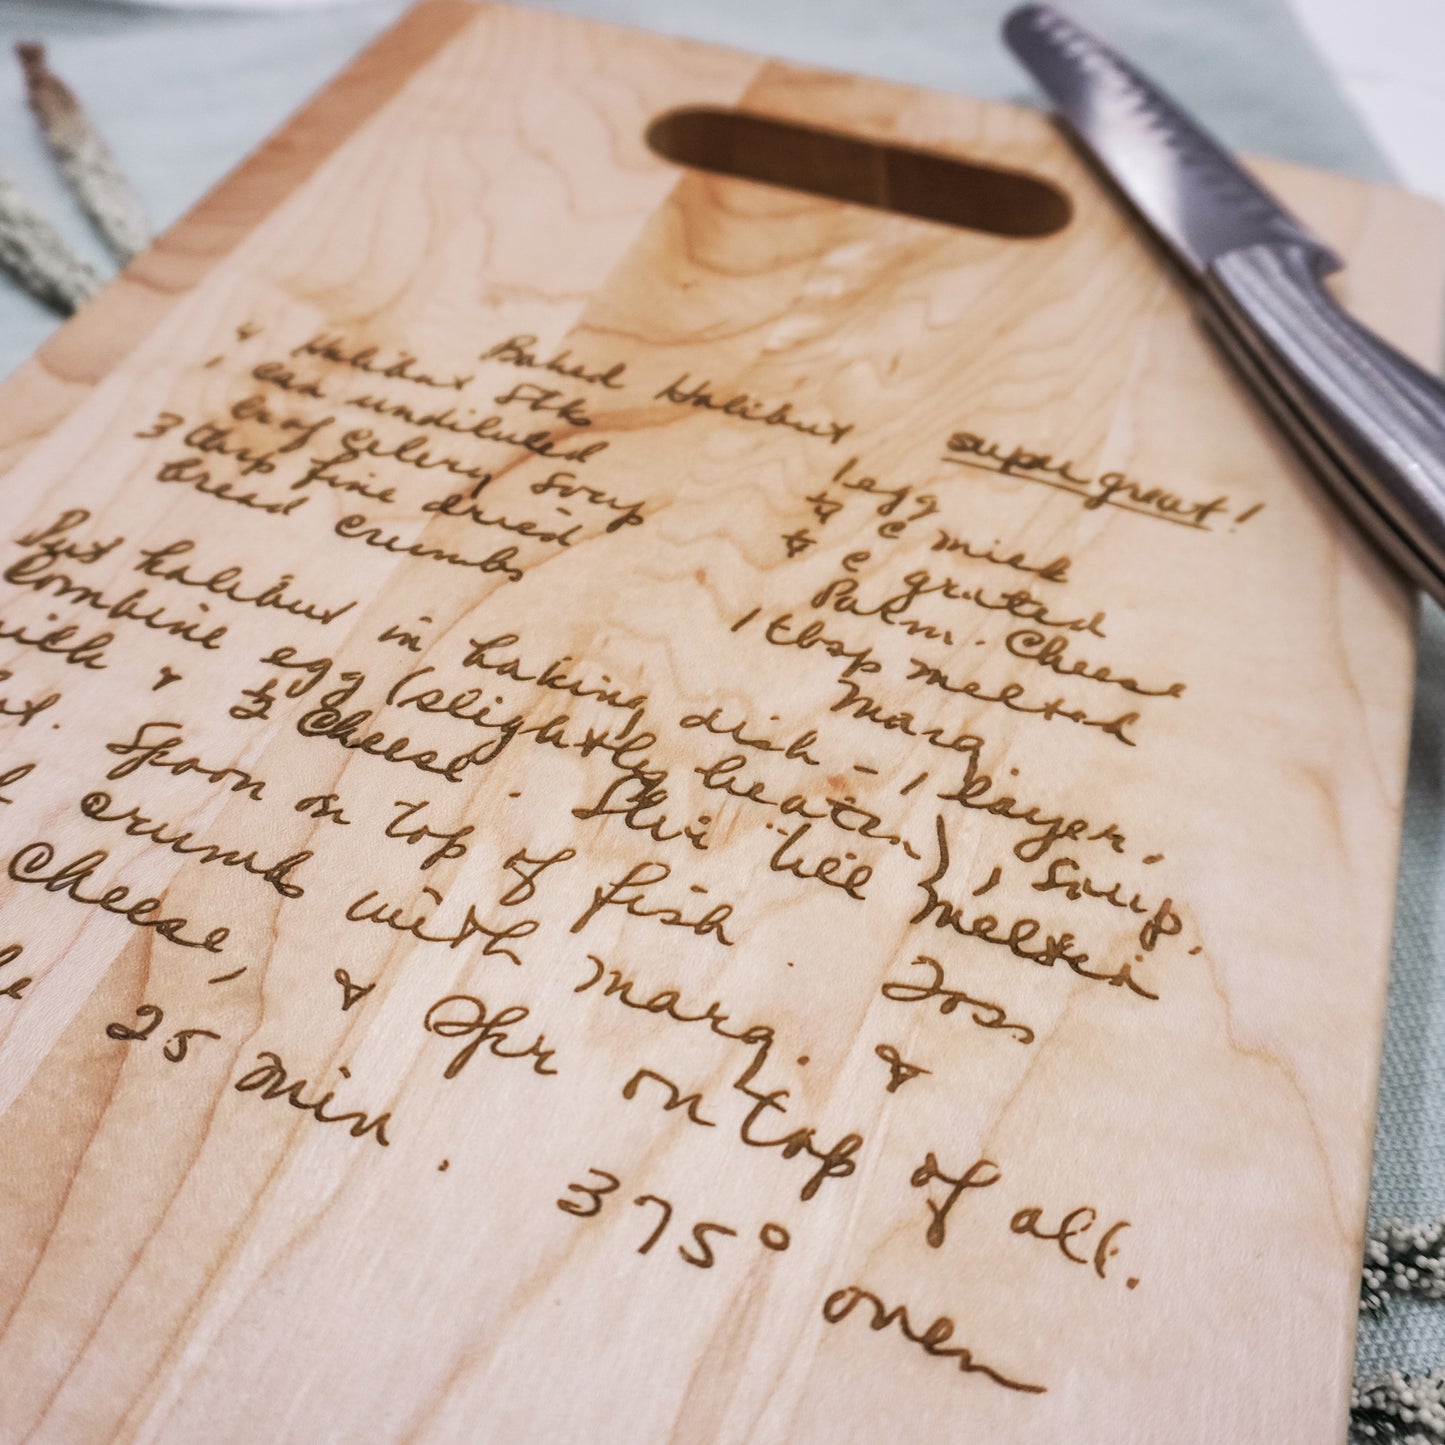 Baked Halibut super great!
4 Halibut Stks
1 can undiluted
cr of Celery Soup
3 tbsp fine dried
bread crumbs
1 egg
c milk
c grated
Parm. Cheese
1 tbsp melted
marg.
Put halibut in baking dish - 1 layer.
Combine egg (slightly beaten), soup,
milk & ½ Cheese. Stir till melted
Spoon on top of fish. Toss
crumbs with marg. &
Cheese, & Spr on top of all.
25 min. 375° oven